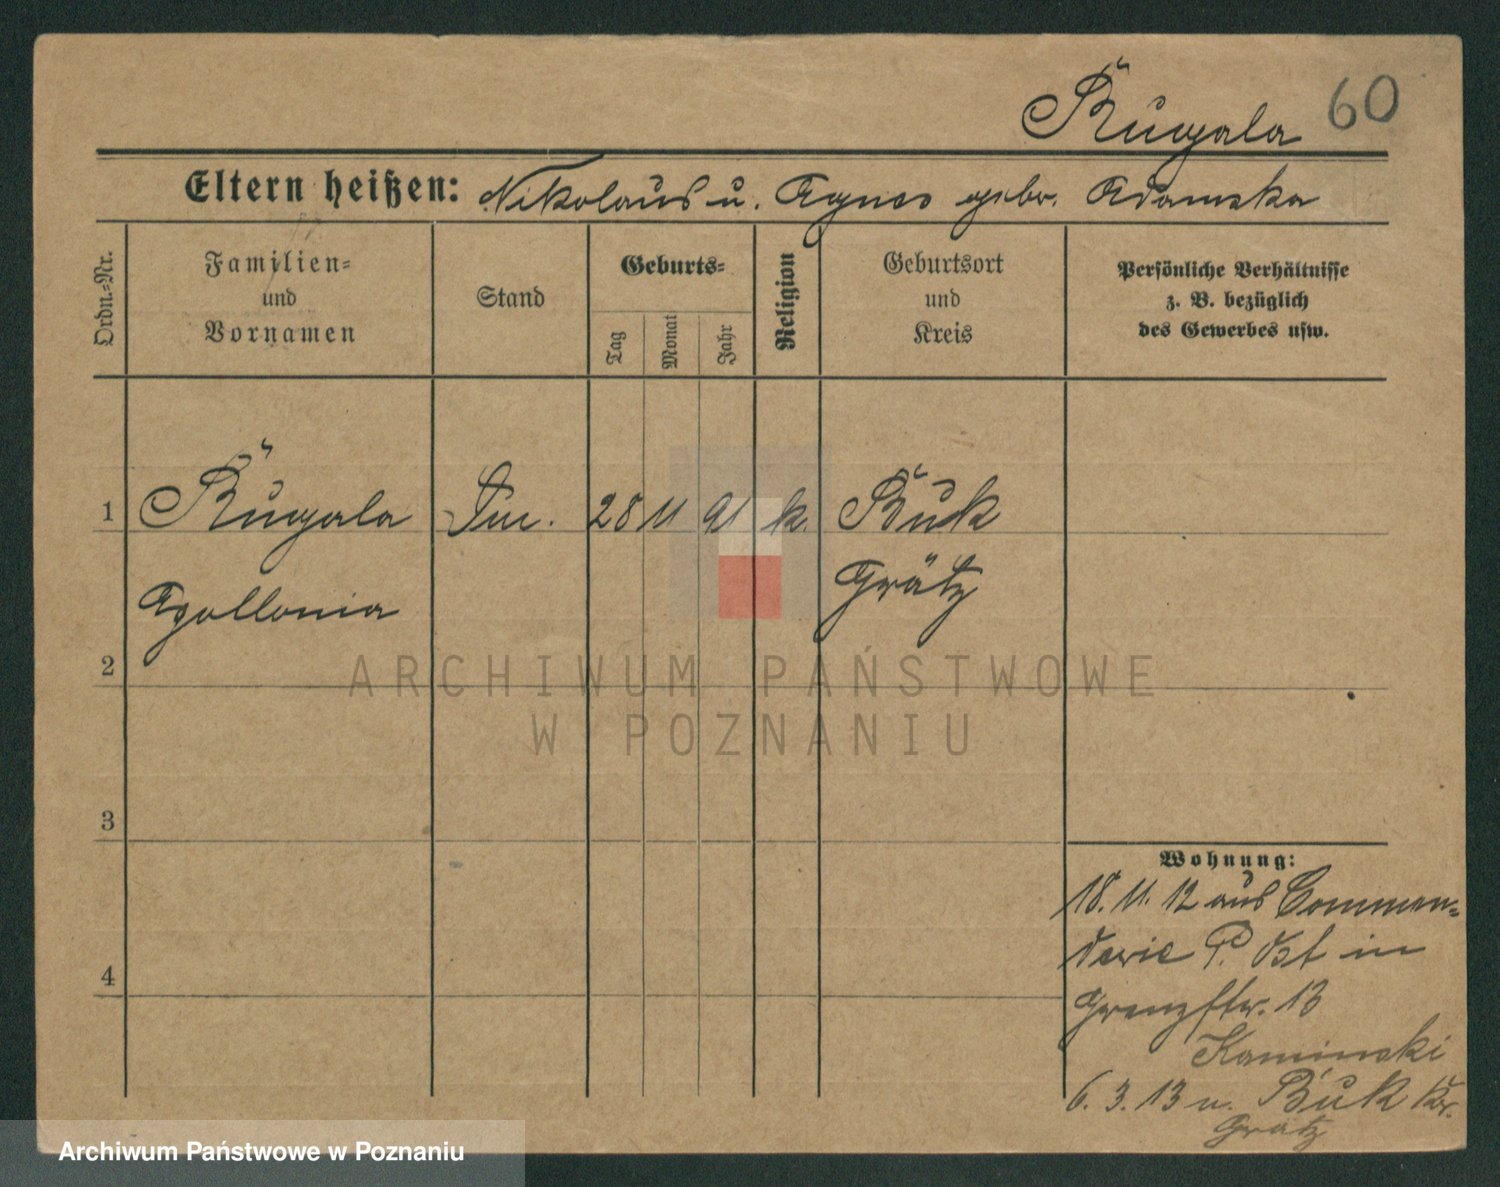 Bugala 60
Eltern heißen: Nikolaus u. Agnes gebr. Adamska
Ordn.-Nr.
Familien-
und
Vornamen
Stand
Geburts-
Tag
Monat
Jahr
Religion
Geburtsort
und
Kreis
Persönliche Verhältnisse
z. B. bezüglich
des Gewerbes usw.
1 Bugala 28 11 91 k. Buk
Apollonia Grätz
2
ARCHIWUM PAŃSTWOWE
W POZNANIU
3
4
Wohnung:
18. 11. 12 aus Comman-
derie P. Ost in
Grenzstr. 13
Kaminski
6. 3. 13 n. Buk Kr.
Grätz
Archiwum Państwowe w Poznaniu